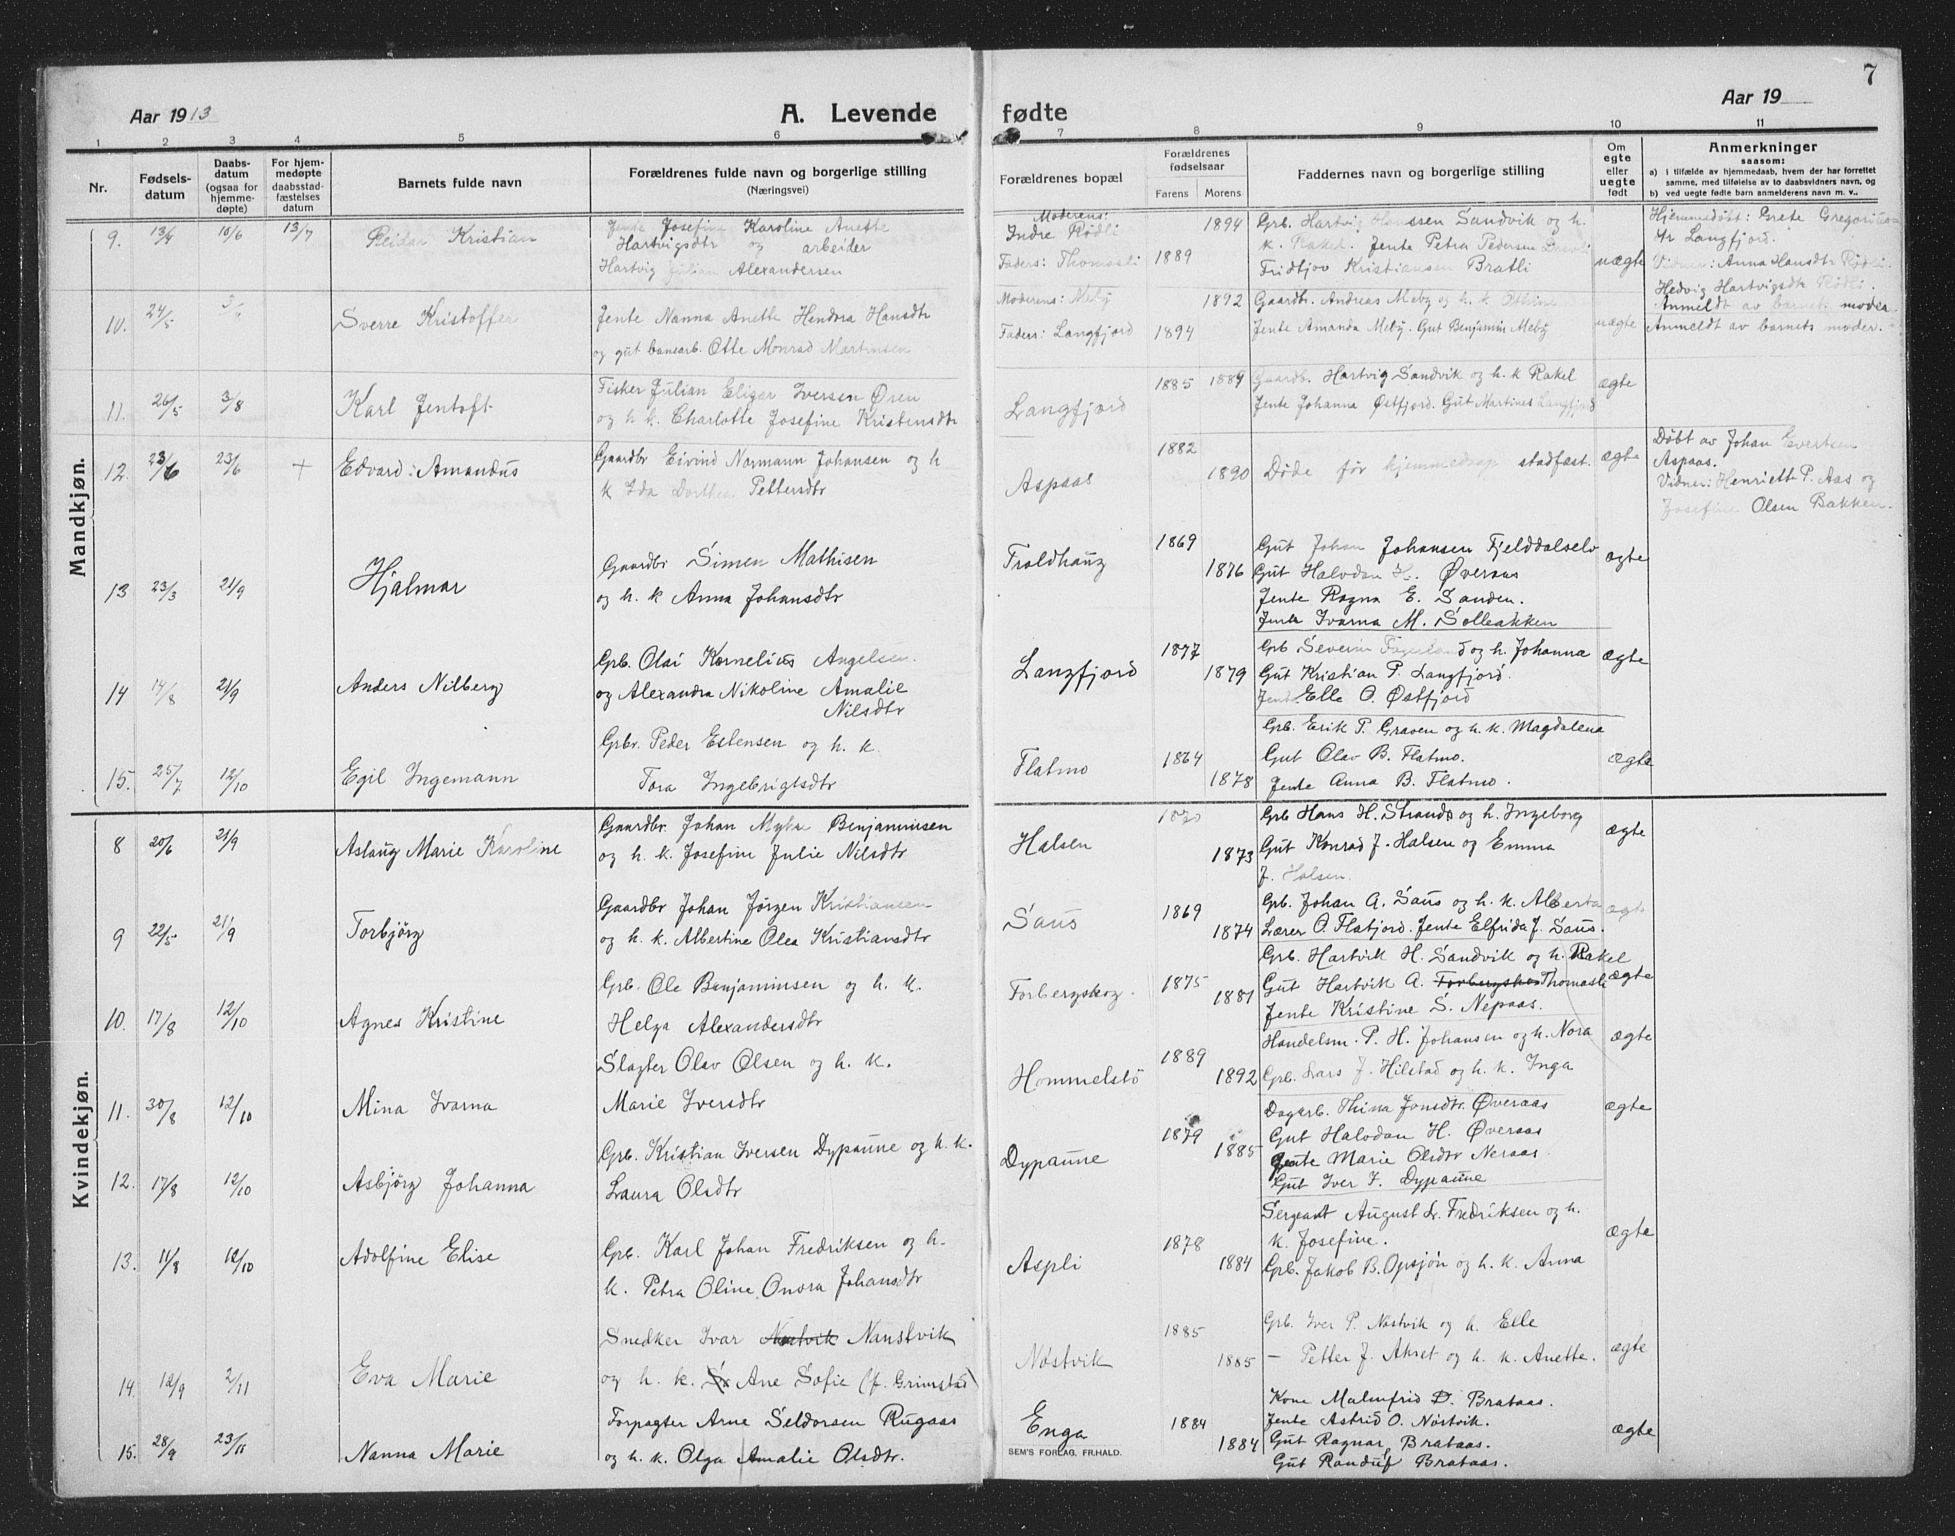 7
Aar 1913
A. Levende
fødte
Aar 19
1 2 3 4 5 6 7 8 9 10 11
Nr.
Fødsels-
datum
Daabs-
datum
(ogsaa for
hjemme-
døpte)
For hjem-
medøpte
daabsstad-
fæstelses
datum
Barnets fulde navn
Forældrenes fulde navn og borgerlige stilling
(Næringsvei)
Forældrenes bopæl
Forældrenes
fødselsaar
Farens Morens
Faddernes navn og borgerlige stilling
Om
egte
eller
uegte
født
Anmerkninger
saasom:
a) i tilfælde av hjemmedaab, hvem der har forrettet
samme, med tilføielse av to daabsvidners navn, og
b) ved uegte fødte barn anmelderens navn m. v..
Mandkjøn.
9. 13/4 10/6 13/7 Reidar Kristian
Jente Josefine Karoline Anette
Hartvigsdtr og arbeider
Hartvig Julian Alexandersen
Moderens:
Indre Rødli
Faders: Thomasli
1889 1894
Grb. Hartvig Hanssen Sandvik og h.
k. Rakel. Jente Petra Pedersen
Fridtjov Kristiansen Bratli
uægte
Hjemmedøbt: Grete
Langfjord.
Vidner: Anna Hansdtr Rødli.
Hedvig Hartvigsdtr Rødli.
Anmeldt av barnets moder.
10. 24/5 Sverre Kristoffer
Jente Nanna Anette Hendora Hansdtr
og gut banearb. Otte Monrad Martinsen
Moderens: Meby
Faders: Langfjord
1894 1892
Gaardbr. Andreas Meby og h. k.
Jente Amanda Meby. Gut Benjamin Meby
uægte
Anmeldt av barnets moder.
11. 26/5 3/8 Karl Jentoft
Fisker Julian Eligar Iversen Øren
og h. k. Charlotte Josefine Kristensdtr
Langfjord
1885 1889
Gaardb. Hartvig Sandvik og h. k Rakel
Jente Johanna Østfjord. Gut Martines Langfjord
ægte
12. 23/6 23/6 + Edvard Amandus
Gaardbr Eivind Normann Johansen og h
k Ida Dorthea Pettersdtr
Aspaas
1882 1890
Døde før hjemmedaap stadfæst.
ægte
Døbt av Johan Evertsen
Aspaas.
Vidner: Henriette P. Aas og
Josefine Olsen Bakken.
13 23/3 21/9 Hjalmar
Gaardbr Simen Mathisen
og h. k Anna Johansdtr
Troldhaug
1869 1876
Gut Johan Johansen Fjelddalselv
Gut Halvdan H. Øveraas
Jente Ragna E. Sanden.
Jente Ivarna M. Solleakken
ægte
14 14/8 21/9 Anders Nilberg
Grb. Olai Kornelius Angelsen.
og Alexandra Nikoline Amalie
Nilsdtr
Langfjord
1877 1879
Grb Severin Fagerland og h. Johanna
Gut Kristian P. Langfjord.
Jente Elle O. Østfjord
ægte
15. 25/7 12/10 Egil Ingemann
Grbr. Peder Estensen og h. k.
Tora Ingebrigtsdtr
Flatmo
1864 1878
Grb. Erik P. Graven og h. k. Magdalena
Gut Olav B. Flatmo.
Jente Anna B. Flatmo.
ægte
Kvindekjøn.
8 20/6 21/9 Aslaug Marie Karoline
Gaardbr. Johan Myhr Benjaminsen
og h. k. Josefine Julie Nilsdtr
Halsen
1870 1873
Grb Hans H. Strand og h. Ingeborg
Gut Konrad J. Halsen og Emma
J. Halsen.
ægte
9 22/5 21/9 Torbjørg
Gaardbr Johan Jørgen Kristiansen
og h. k. Albertine Olea Kristiansdtr
Saus
1869 1874
Grb. Johan A. Saus og h. k. Alberta
Lærer O. Flatjord. Jente Elfrida J. Saus.
ægte
10. 17/8 12/10 Agnes Kristine
Grb. Ole Benjaminsen og h. k.
Helga Alexandersdtr
Forbergskog.
1875 1881
Grb. Hartvik H. Sandvik og h. Rakel
Gut Hartvik A. Forbergskog Thomasli
Jente Kristine S. Nepaas.
ægte
11. 30/8 12/10 Mina Ivarna
Slagter Olav Olsen og h. k.
Marie Iversdtr
Hommelstø
1889 1892
Handelsm. P. H. Johansen og h. Nora
Grb. Lars J. Hilstad og h. k. Inga
ægte
12. 17/8 12/10 Asbjørg Johanna
Grb. Kristian Iversen Dypaune og h. k.
Laura Olsdtr
Dypaune
1879 1885
Dagarb. Thina Jonsdtr. Øveraas
Gut Halvdan H. Øveraas
Jente Marie Olsdtr Neraas.
Gut Iver I. Dypaune
ægte
13. 11/8 12/10 Adolfine Elise
Grb. Karl Johan Fredriksen og h.
k. Petra Oline Onora Johansdtr
Aspli
1878 1884
Sergeant August L. Fredriksen og h.
k. Josefine.
Grb. Jakob B. Opsjøn og h. k. Anna
ægte
14. 12/9 2/11 Eva Marie
Snedker Ivar Nøstvik Nanstvik
og h. k. Ane Sofie (f. Grimstad)
Nøstvik
1885 1885
Grb. Iver P. Nøstvik og h. Elle
— Petter J. Akset og h. k. Anette.
ægte
15. 28/9 23/11 Nanna Marie
Forpagter Arne Seldorsen Rugaas
og h. k. Olga Amalie Olsdtr.
Enga
1884 1884
Kone Malmfrid D. Brataas.
Jente Astrid O. Nøstvik.
Gut Ragnar Brataas.
Gut Randulf Brataas.
ægte
SEM'S FORLAG, FR.HALD.